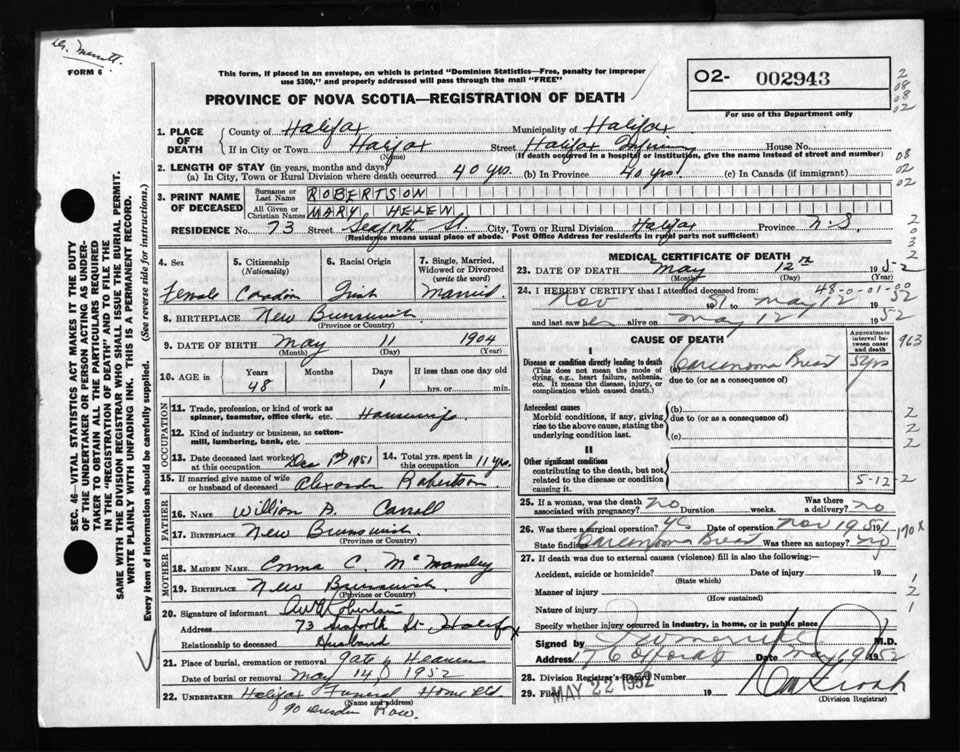 Dr. Merritt.
FORM 6
This form, if placed in an envelope, on which is printed "Dominion Statistics—Free, penalty for improper
use $300," and properly addressed will pass through the mail "FREE"
O2- 002943
For use of the Department only
PROVINCE OF NOVA SCOTIA—REGISTRATION OF DEATH
1. PLACE OF DEATH { County of Halifax Municipality of Halifax
If in City or Town Halifax Street Halifax Infirmary House No.
(Name) (If death occurred in a hospital or institution, give the name instead of street and number)
2. LENGTH OF STAY (in years, months and days)
(a) In City, Town or Rural Division where death occurred 40 yrs. (b) In Province 40 yrs. (c) In Canada (if immigrant)
3. PRINT NAME OF DECEASED { Surname or Last Name ROBERTSON
All Given or Christian Names MARY HELEN
RESIDENCE No. 73 Street St. City, Town or Rural Division Halifax Province N.S.
(Residence means usual place of abode. Post Office Address for residents in rural parts not sufficient)
4. Sex 5. Citizenship (Nationality) 6. Racial Origin 7. Single, Married, Widowed or Divorced (write the word)
Female Irish Married
8. BIRTHPLACE New Brunswick
(Province or Country)
9. DATE OF BIRTH May 11 1904
(Month) (Day) (Year)
10. AGE Years Months Days If less than one day old
48 1 hrs. or min.
OCCUPATION
11. Trade, profession, or kind of work as spinner, teamster, office clerk, etc. Housewife
12. Kind of industry or business, as cotton-mill, lumbering, bank, etc.
13. Date deceased last worked at this occupation Dec 1951 14. Total yrs. spent in this occupation 11 yrs.
15. If married give name of wife or husband of deceased Alexander Robertson
FATHER
16. NAME William A. Carroll
17. BIRTHPLACE New Brunswick
(Province or Country)
MOTHER
18. MAIDEN NAME Emma C.
19. BIRTHPLACE New Brunswick
(Province or Country)
20. Signature of informant Robertson
Address 73 St Halifax
Relationship to deceased Husband
21. Place of burial, cremation or removal Gate of Heaven
Date of burial or removal May 14 1952
22. UNDERTAKER Halifax Funeral Home Ltd
(Name and address)
90 Dresden Row.
MEDICAL CERTIFICATE OF DEATH
23. DATE OF DEATH May 12th 1952
(Month) (Day) (Year)
48-0-01-00
24. I HEREBY CERTIFY that I attended deceased from:
Nov 51 to May 12 1952
and last saw her alive on May 12 1952
CAUSE OF DEATH
Approximate interval between onset and death
I
Disease or condition directly leading to death (This does not mean the mode of dying, e.g., heart failure, asthenia, etc. It means the disease, injury, or complication which caused death.)
(a) Carcenoma Breast yrs
due to (or as a consequence of)
Antecedent causes
Morbid conditions, if any, giving rise to the above cause, stating the underlying condition last.
(b)
due to (or as a consequence of)
(c)
II
Other significant conditions contributing to the death, but not related to the disease or condition causing it.
5-12-2
25. If a woman, was the death associated with pregnancy? no Duration weeks. Was there a delivery? no
26. Was there a surgical operation? yes Date of operation Nov 1951
State findings Carcenoma Breast Was there an autopsy? no
170X
27. If death was due to external causes (violence) fill in also the following:—
Accident, suicide or homicide? Date of injury 19
(State which)
Manner of injury
(How sustained)
Nature of injury
Specify whether injury occurred in industry, in home, or in public place
Signed by M.D.
Address Date May 19 1952
28. Division Registrar's Record Number
29. Filed MAY 22 1952 19
(Division Registrar)
2
08
08
02
08
02
02
2
0
3
2
963
2
2
2
1
2
1
SEC. 46—VITAL STATISTICS ACT MAKES IT THE DUTY
OF THE UNDERTAKER OR PERSON ACTING AS UNDER-
TAKER TO OBTAIN ALL THE PARTICULARS REQUIRED
IN THE "REGISTRATION OF DEATH" AND TO FILE THE
SAME WITH THE DIVISION REGISTRAR WHO SHALL ISSUE THE BURIAL PERMIT.
WRITE PLAINLY WITH UNFADING INK. THIS IS A PERMANENT RECORD.
Every item of information should be carefully supplied. (See reverse side for instructions.)